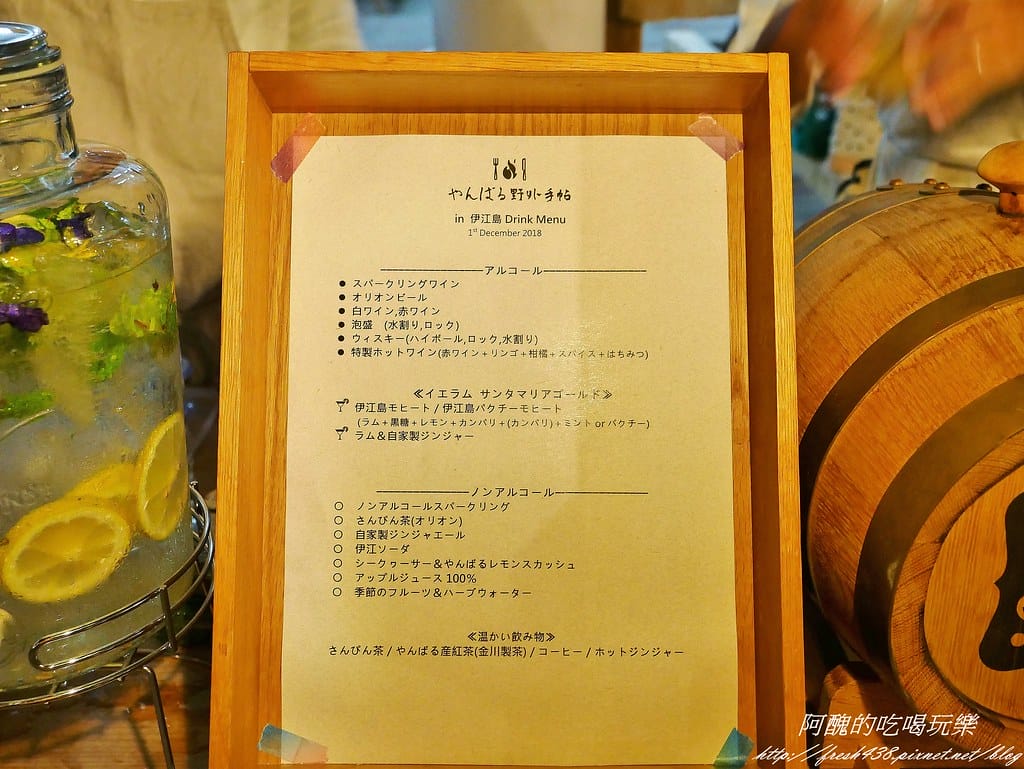 やんばる野外手帖
in 伊江島 Drink Menu
1st December 2018
アルコール
● スパークリングワイン
● オリオンビール
● 白ワイン,赤ワイン
● 泡盛 (水割り,ロック)
● ウィスキー(ハイボール,ロック,水割り)
● 特製ホットワイン(赤ワイン+リンゴ+柑橘+スパイス+はちみつ)
≪イエラム サンタマリアゴールド≫
伊江島モヒート / 伊江島パクチーモヒート
(ラム+黒糖+レモン+カンパリ+(カンパリ)+ミント or パクチー)
ラム&自家製ジンジャー
ノンアルコール
○ ノンアルコールスパークリング
○ さんぴん茶(オリオン)
○ 自家製ジンジャエール
○ 伊江ソーダ
○ シークヮーサー&やんばるレモンスカッシュ
○ アップルジュース 100%
○ 季節のフルーツ&ハーブウォーター
≪温かい飲み物≫
さんぴん茶 / やんばる産紅茶(金川製茶) / コーヒー / ホットジンジャー
阿醜的吃喝玩樂
http://fresh438.pixnet.net/blog